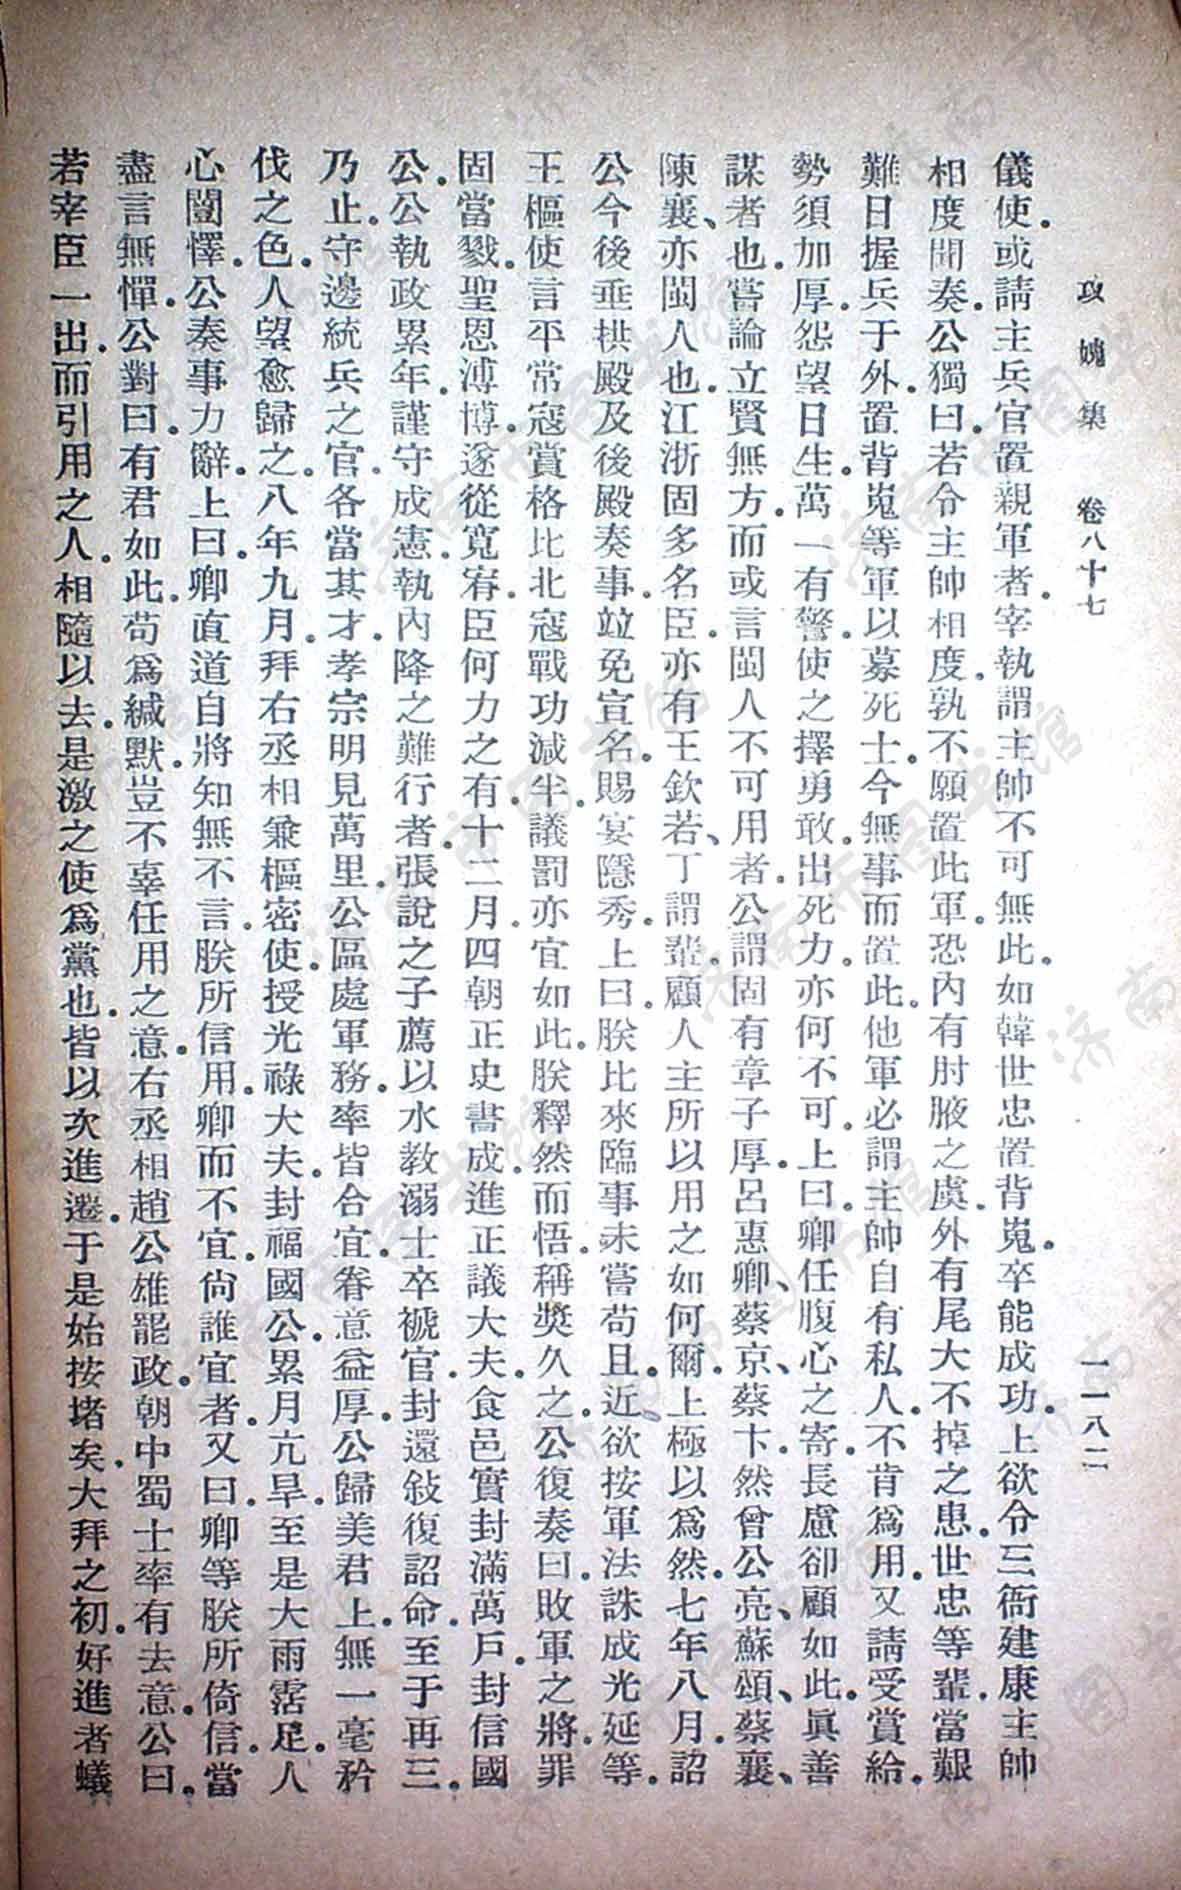 攻媿集　卷八十七　一一八二
儀使．或請主兵官置親軍者．宰執謂主帥不可無此．如韓世忠置背嵬．卒能成功．上欲令三衙建康主帥
相度聞奏．公獨曰．若令主帥相度．孰不願置此軍．恐內有肘腋之虞．外有尾大不掉之患．世忠等輩．當艱
難日．握兵于外．置背嵬等軍以募死士．今無事而置此．他軍必謂主帥自有私人．不肯爲用．又請受賞給．
勢須加厚．怨望日生．萬一有警．使之擇勇敢．出死力．亦何不可．上曰．卿任腹心之寄．長慮卻顧如此．眞善
謀者也．嘗論立賢無方．而或言閩人不可用者．公謂固有章子厚．呂惠卿、蔡京、蔡卞．然曾公亮、蘇頌、蔡襄、
陳襄、亦閩人也．江浙固多名臣．亦有王欽若、丁謂輩．顧人主所以用之如何爾．上極以爲然．七年八月．詔
公今後垂拱殿及後殿奏事．竝免宣名．賜宴隱秀．上曰．朕比來臨事未嘗苟且．近欲按軍法誅成光延等．
王樞使言平常寇賞格．比北寇戰功減半．議罰亦宜如此．朕釋然而悟．稱獎久之．公復奏曰．敗軍之將．罪
固當戮．聖恩溥博．遂從寬宥．臣何力之有．十二月．四朝正史書成．進正議大夫．食邑實封滿萬戶．封信國
公．公執政累年．謹守成憲．執內降之難行者．張說之子薦以水教溺士卒褫官．封還敍復詔命．至于再三．
乃止．守邊統兵之官．各當其才．孝宗明見萬里．公區處軍務．率皆合宜．眷意益厚．公歸美君上．無一毫矜
伐之色．人望愈歸之．八年九月．拜右丞相兼樞密使．授光祿大夫．封福國公．累月亢旱．至是大雨霑足．人
心闓懌．公奏事力辭．上曰．卿直道自將．知無不言．朕所信用．卿而不宜．尙誰宜者．又曰．卿等朕所倚信．當
盡言無憚．公對曰．有君如此．苟爲緘默．豈不辜任用之意．右丞相趙公雄罷政．朝中蜀士率有去意．公曰．
若宰臣一出．而引用之人．相隨以去．是激之使爲黨也．皆以次進遷．于是始按堵矣．大拜之初．好進者蟻